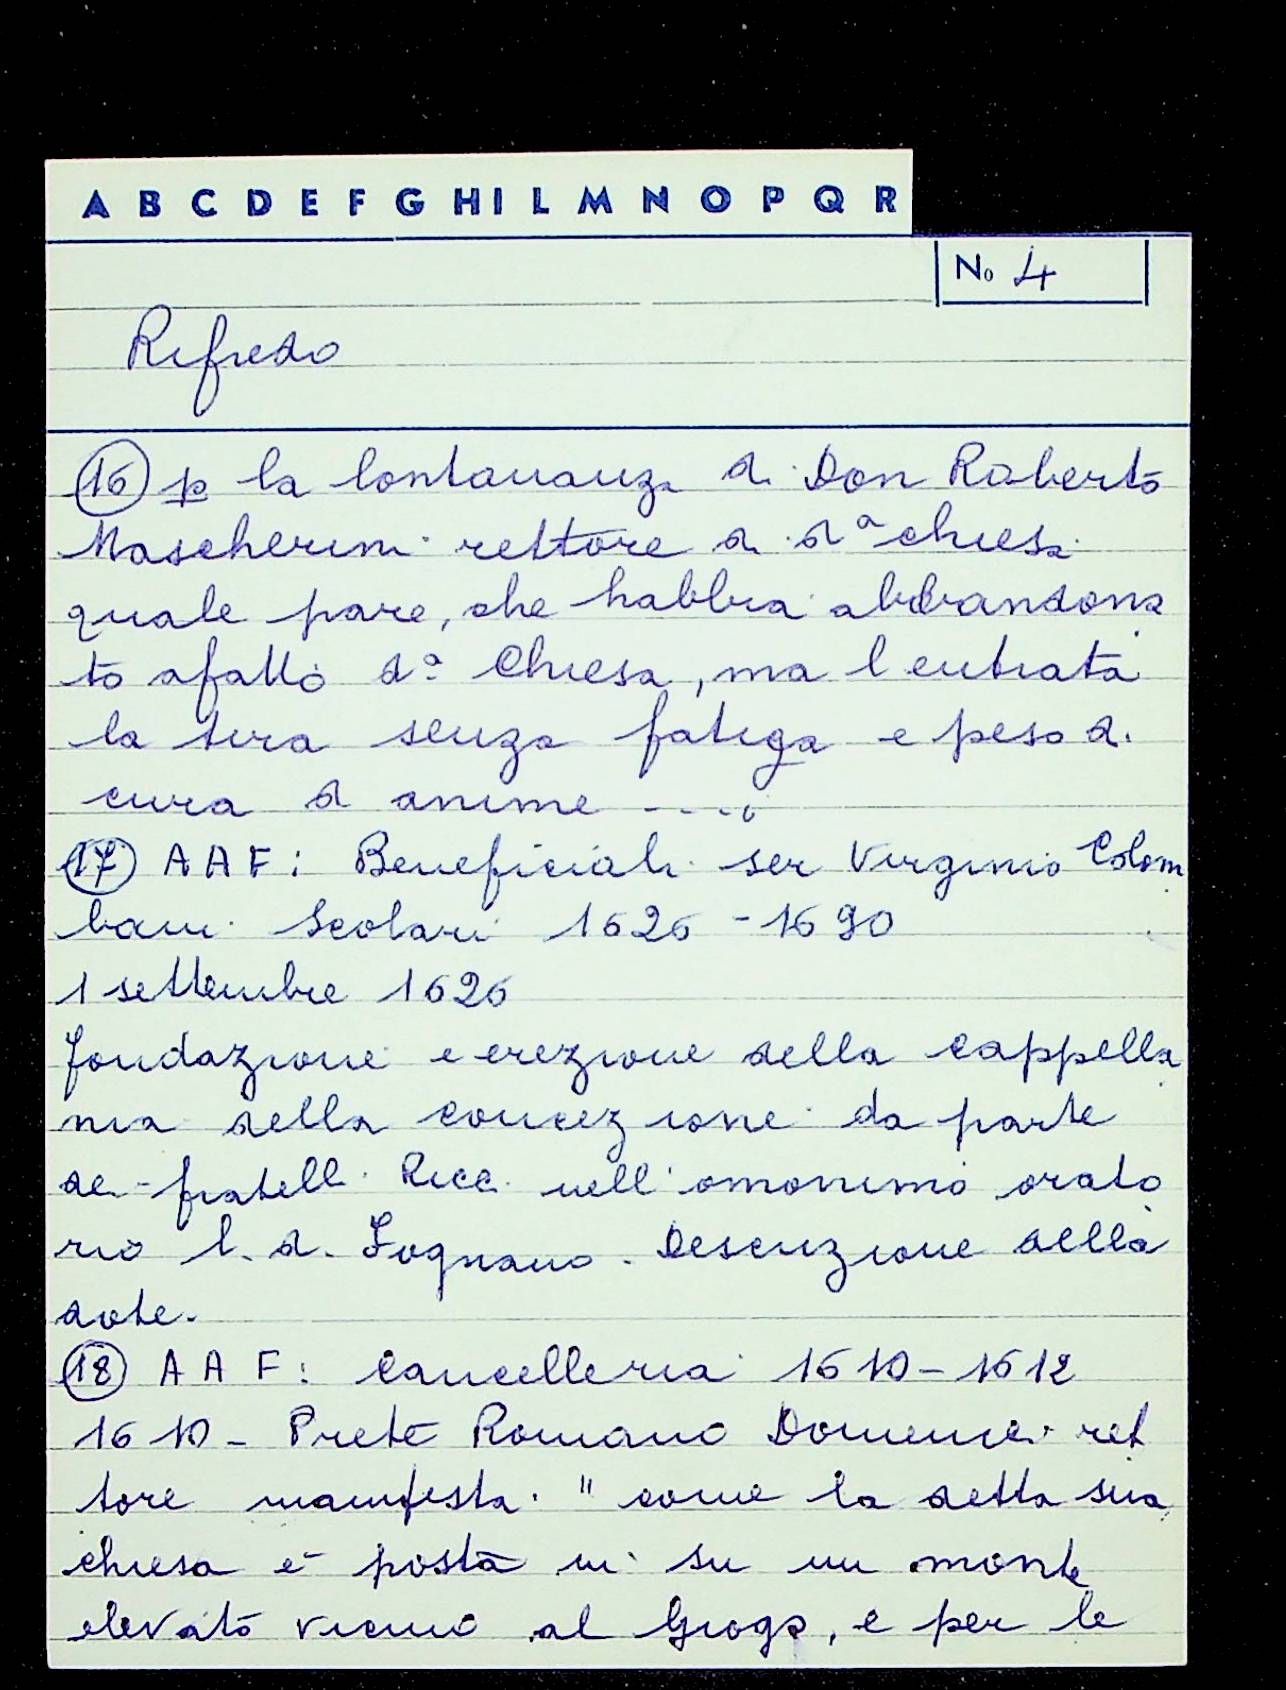 A B C D E F G H I L M N O P Q R
No 4
Rifredo
16 p la lontananza di Don Roberto
Mascherini rettore di da chiesa
quale pare, che habbia abbandona
to afatto da Chiesa, ma l'entrata
la tira senza fatiga e peso di
cura d anime ....
17 AAF: Beneficiali ser Virginio Colom
bani Scolari 1626 - 1690
1 settembre 1626
fondazione e erezione della cappella
nia della concezione da parte
dei fratelli Ricci nell'omonimo orato
rio l. d. Fognano. Descrizione della
dote.
18 AAF: Cancelleria 1610 - 1612
1610 - Prete Romano Domenici ret
tore manifesta. " come la detta sua
chiesa è posta in su un monte
elevato vicino al Giogo, e per le